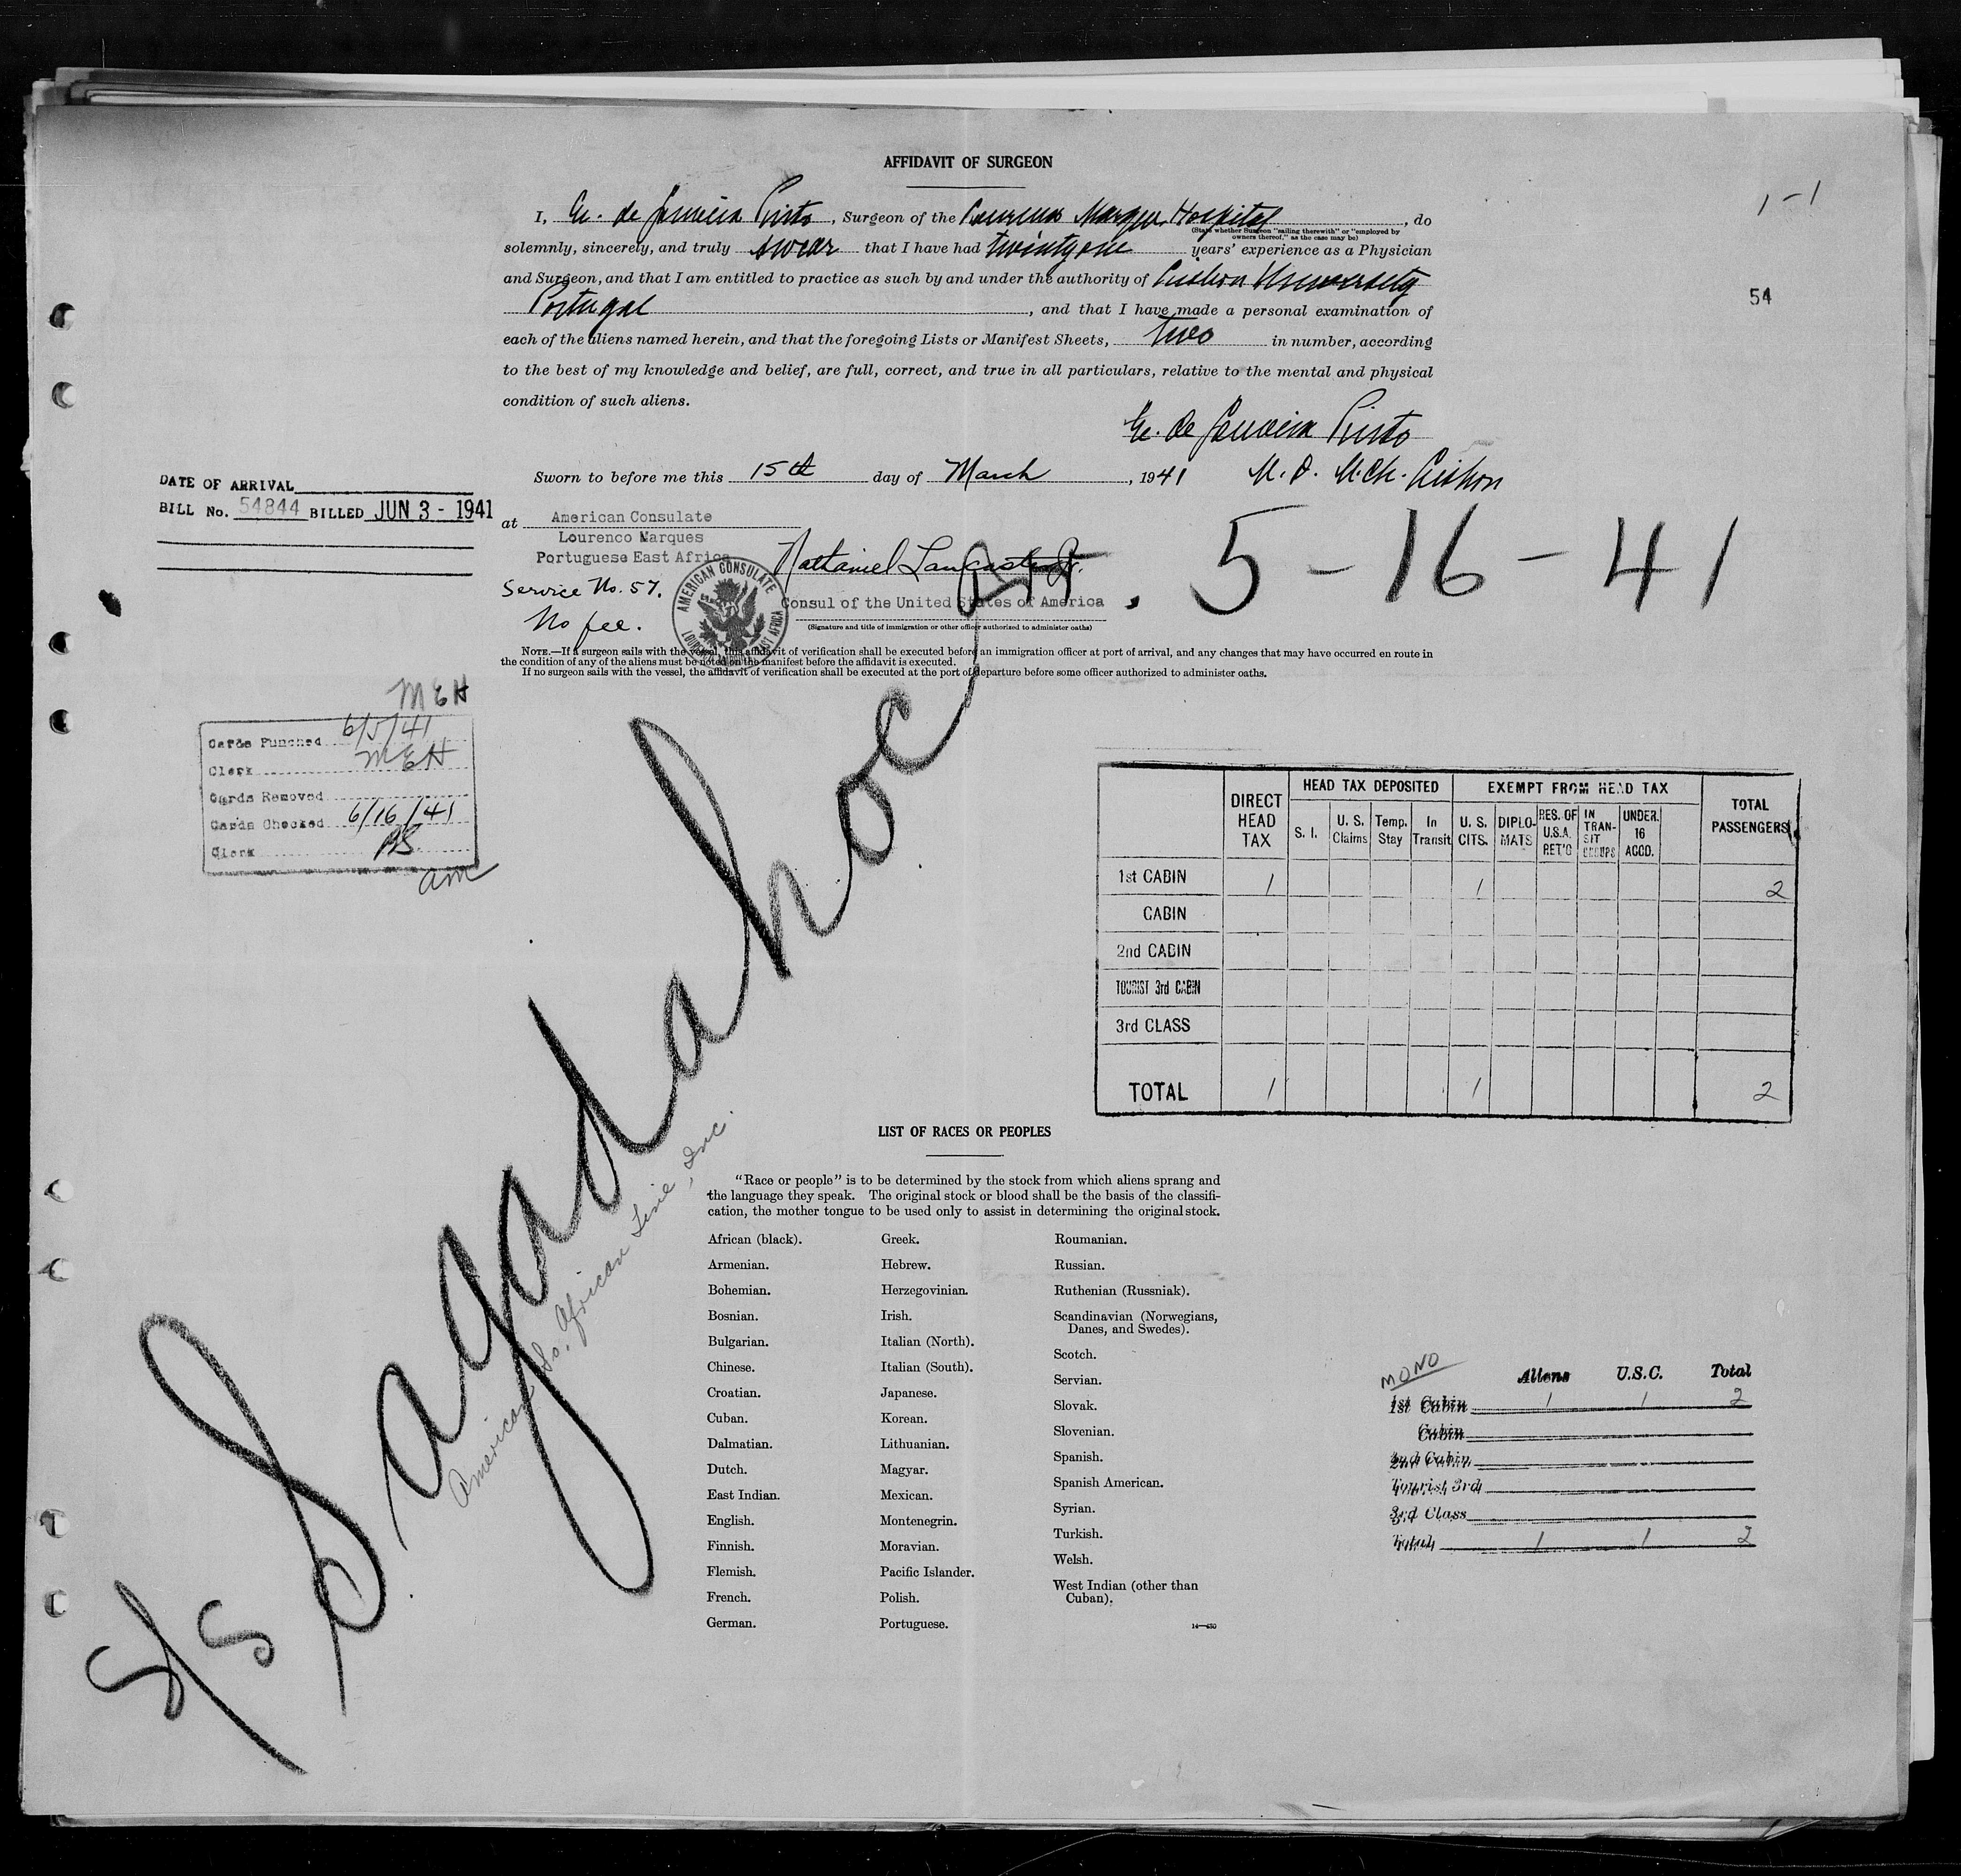 AFFIDAVIT OF SURGEON
1-1
I, de Pinto, Surgeon of the Lourenco Marques Hospital, do
(State whether Surgeon "sailing therewith" or "employed by
owners thereof," as the case may be)
solemnly, sincerely, and truly swear that I have had twenty one years' experience as a Physician
and Surgeon, and that I am entitled to practice as such by and under the authority of Lisbon University
Portugal, and that I have made a personal examination of
54
each of the aliens named herein, and that the foregoing Lists or Manifest Sheets, two in number, according
to the best of my knowledge and belief, are full, correct, and true in all particulars, relative to the mental and physical
condition of such aliens.
de Pinto
Sworn to before me this 15th day of March, 1941
M. D. M. Ch. Lisbon
DATE OF ARRIVAL
BILL No. 54844 BILLED JUN 3 - 1941
at American Consulate
Lourenco Marques
Portuguese East Africa
Nathaniel Lancaster Jr.
5-16-41
Service No. 57.
No fee.
AMERICAN CONSULATE
Consul of the United States of America
(Signature and title of immigration or other officer authorized to administer oaths)
NOTE.—If a surgeon sails with the vessel, this affidavit of verification shall be executed before an immigration officer at port of arrival, and any changes that may have occurred en route in
the condition of any of the aliens must be noted on the manifest before the affidavit is executed.
If no surgeon sails with the vessel, the affidavit of verification shall be executed at the port of departure before some officer authorized to administer oaths.
MEH
Cards Punched 6/5/41
Clerk MEH
Cards Removed
Cards Checked 6/16/41
Clerk
am
HEAD TAX DEPOSITED EXEMPT FROM HEAD TAX
DIRECT HEAD TAX S. I. U. S. Claims Temp. Stay In Transit U. S. CITS. DIPLO-MATS RES. OF U.S.A. RET'G IN TRAN-SIT GROUPS UNDER. 16 ACCD. TOTAL PASSENGERS
1st CABIN 1 1 2
CABIN
2nd CABIN
TOURIST 3rd CABIN
3rd CLASS
TOTAL 1 1 2
S/S Sagadahoc
American So. African Line, Inc.
LIST OF RACES OR PEOPLES
"Race or people" is to be determined by the stock from which aliens sprang and
the language they speak. The original stock or blood shall be the basis of the classifi-
cation, the mother tongue to be used only to assist in determining the original stock.
African (black).
Armenian.
Bohemian.
Bosnian.
Bulgarian.
Chinese.
Croatian.
Cuban.
Dalmatian.
Dutch.
East Indian.
English.
Finnish.
Flemish.
French.
German.
Greek.
Hebrew.
Herzegovinian.
Irish.
Italian (North).
Italian (South).
Japanese.
Korean.
Lithuanian.
Magyar.
Mexican.
Montenegrin.
Moravian.
Pacific Islander.
Polish.
Portuguese.
Roumanian.
Russian.
Ruthenian (Russniak).
Scandinavian (Norwegians,
Danes, and Swedes).
Scotch.
Servian.
Slovak.
Slovenian.
Spanish.
Spanish American.
Syrian.
Turkish.
Welsh.
West Indian (other than
Cuban).
MONO
Aliens U.S.C. Total
1st Cabin 1 1 2
Cabin
2nd Cabin
Tourist 3rd
3rd Class
Total 1 1 2